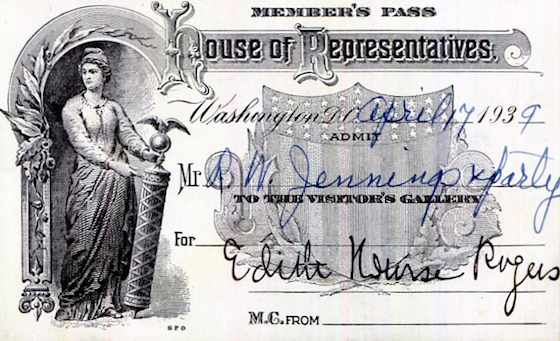 MEMBER'S PASS
House of Representatives.
Washington D.C. April 17 1939
ADMIT
Mr. D. W. Jennings & party
TO THE VISITOR'S GALLERY
For
Edith Nourse Rogers
M.C. FROM
GPO